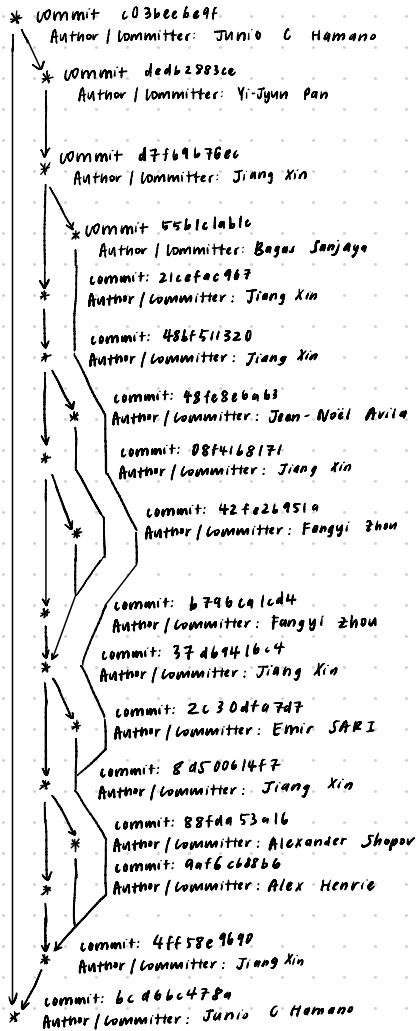 commit c03beebe9f
Author / Committer: Junio C Hamano
commit dedb2883ce
Author / Committer: Yi-Jyun Pan
commit d7f69b76ec
Author / Committer: Jiang Xin
commit 55b1c1ab1c
Author / Committer: Bagas Sanjaya
commit: 21cefac967
Author / Committer: Jiang Xin
commit: 486f511320
Author / Committer: Jiang Xin
commit: 48fe8e6a63
Author / Committer: Jean-Noël Avila
commit: 08f4168171
Author / Committer: Jiang Xin
commit: 42fe26951a
Author / Committer: Fangyi Zhou
commit: b796ca1cd4
Author / Committer: Fangyi Zhou
commit: 37d69416c4
Author / Committer: Jiang Xin
commit: 2c30dfa7d7
Author / Committer: Emir SARI
commit: 8d500614f7
Author / Committer: Jiang Xin
commit: 88fda53a16
Author / Committer: Alexander Shopov
commit: 9af6c688b6
Author / Committer: Alex Henrie
commit: 4ff58e9690
Author / Committer: Jiang Xin
commit: bcd6bc478a
Author / Committer: Junio C Hamano